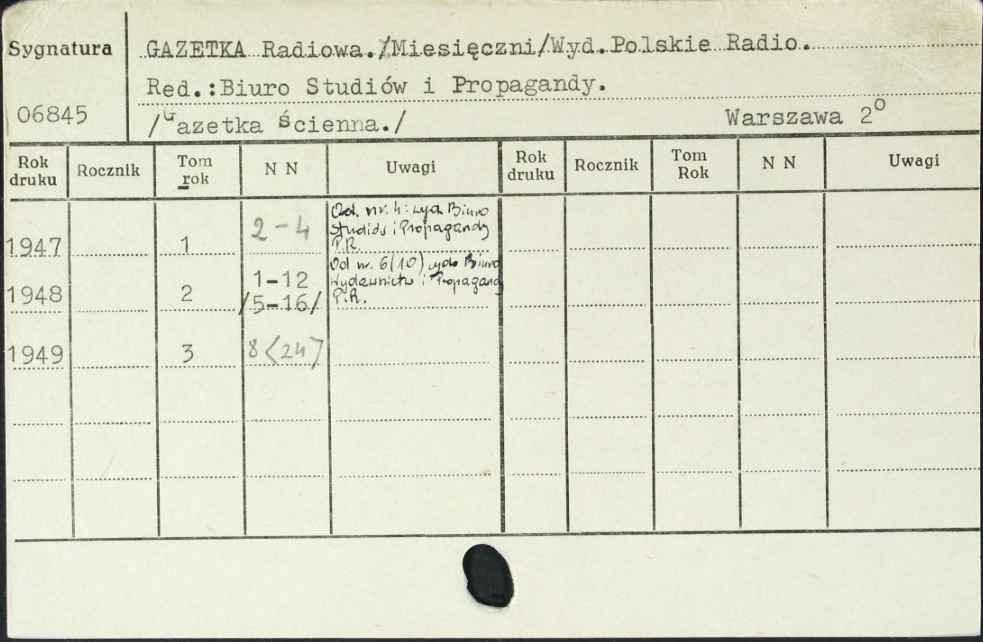 Sygnatura
GAZETKA Radiowa./Miesięczni/Wyd.Polskie Radio.
Red.:Biuro Studiów i Propagandy.
06845
/Gazetka ścienna./ Warszawa 2º
Rok druku Rocznik Tom rok N N Uwagi Rok druku Rocznik Tom Rok N N Uwagi
1947 1 2-4 Od. nr. 4: wyd. Biuro
Studiów i Propagandy
P.R.
1948 2 1-12 Od nr. 6(10) wyd. Biuro
/5-16/ Wydawnictw i Propagandy
P.R.
1949 3 8<24>